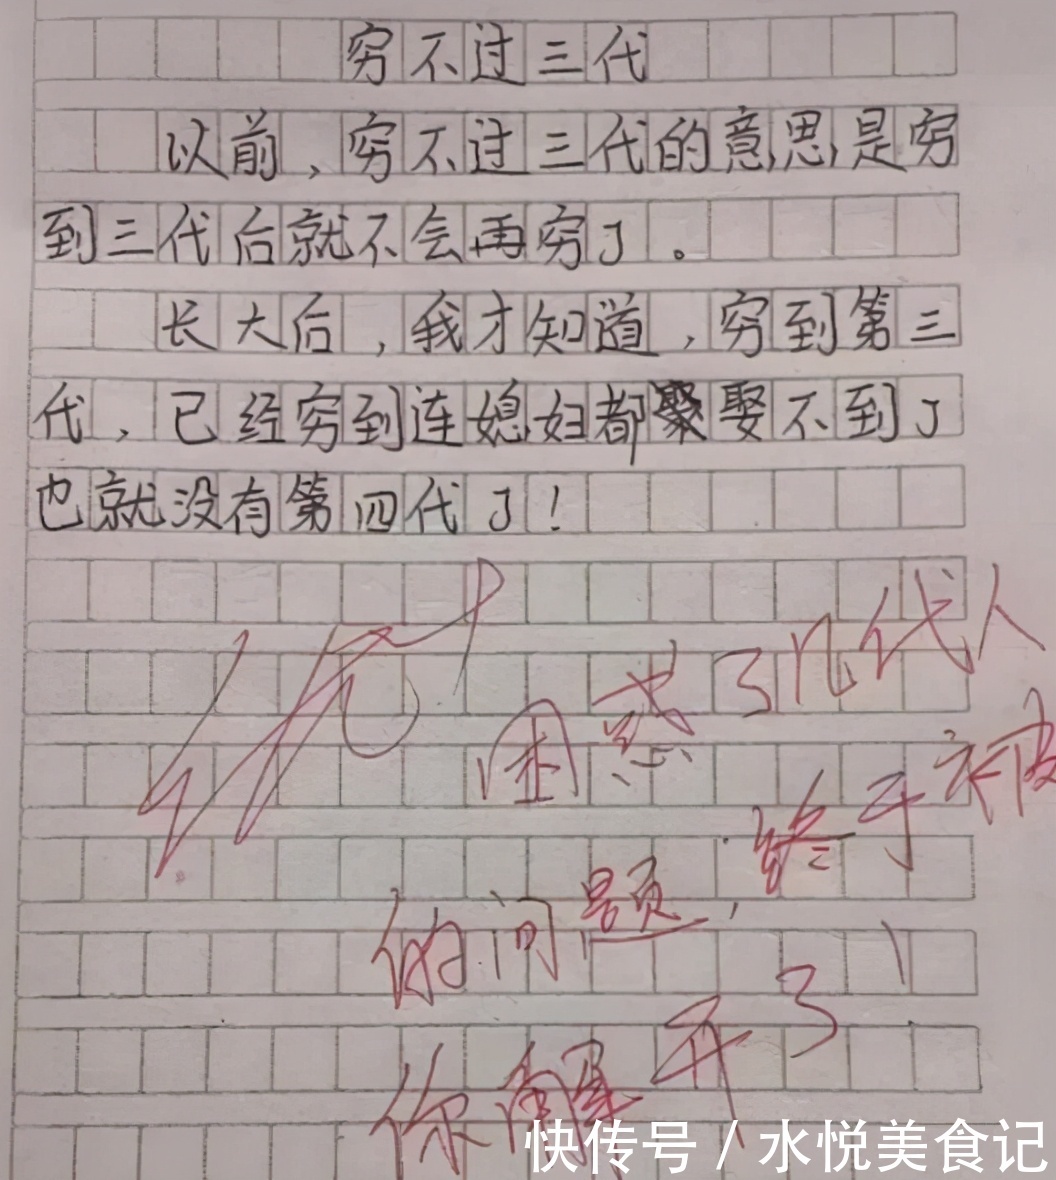 穷不过三代
以前，穷不过三代的意思是穷
到三代后就不会再穷了。
长大后，我才知道，穷到第三
代，已经穷到连媳妇都娶不到了
也就没有第四代了！
优
困惑了几代人
的问题，终于被
你解开了
快传号 / 水悦美食记